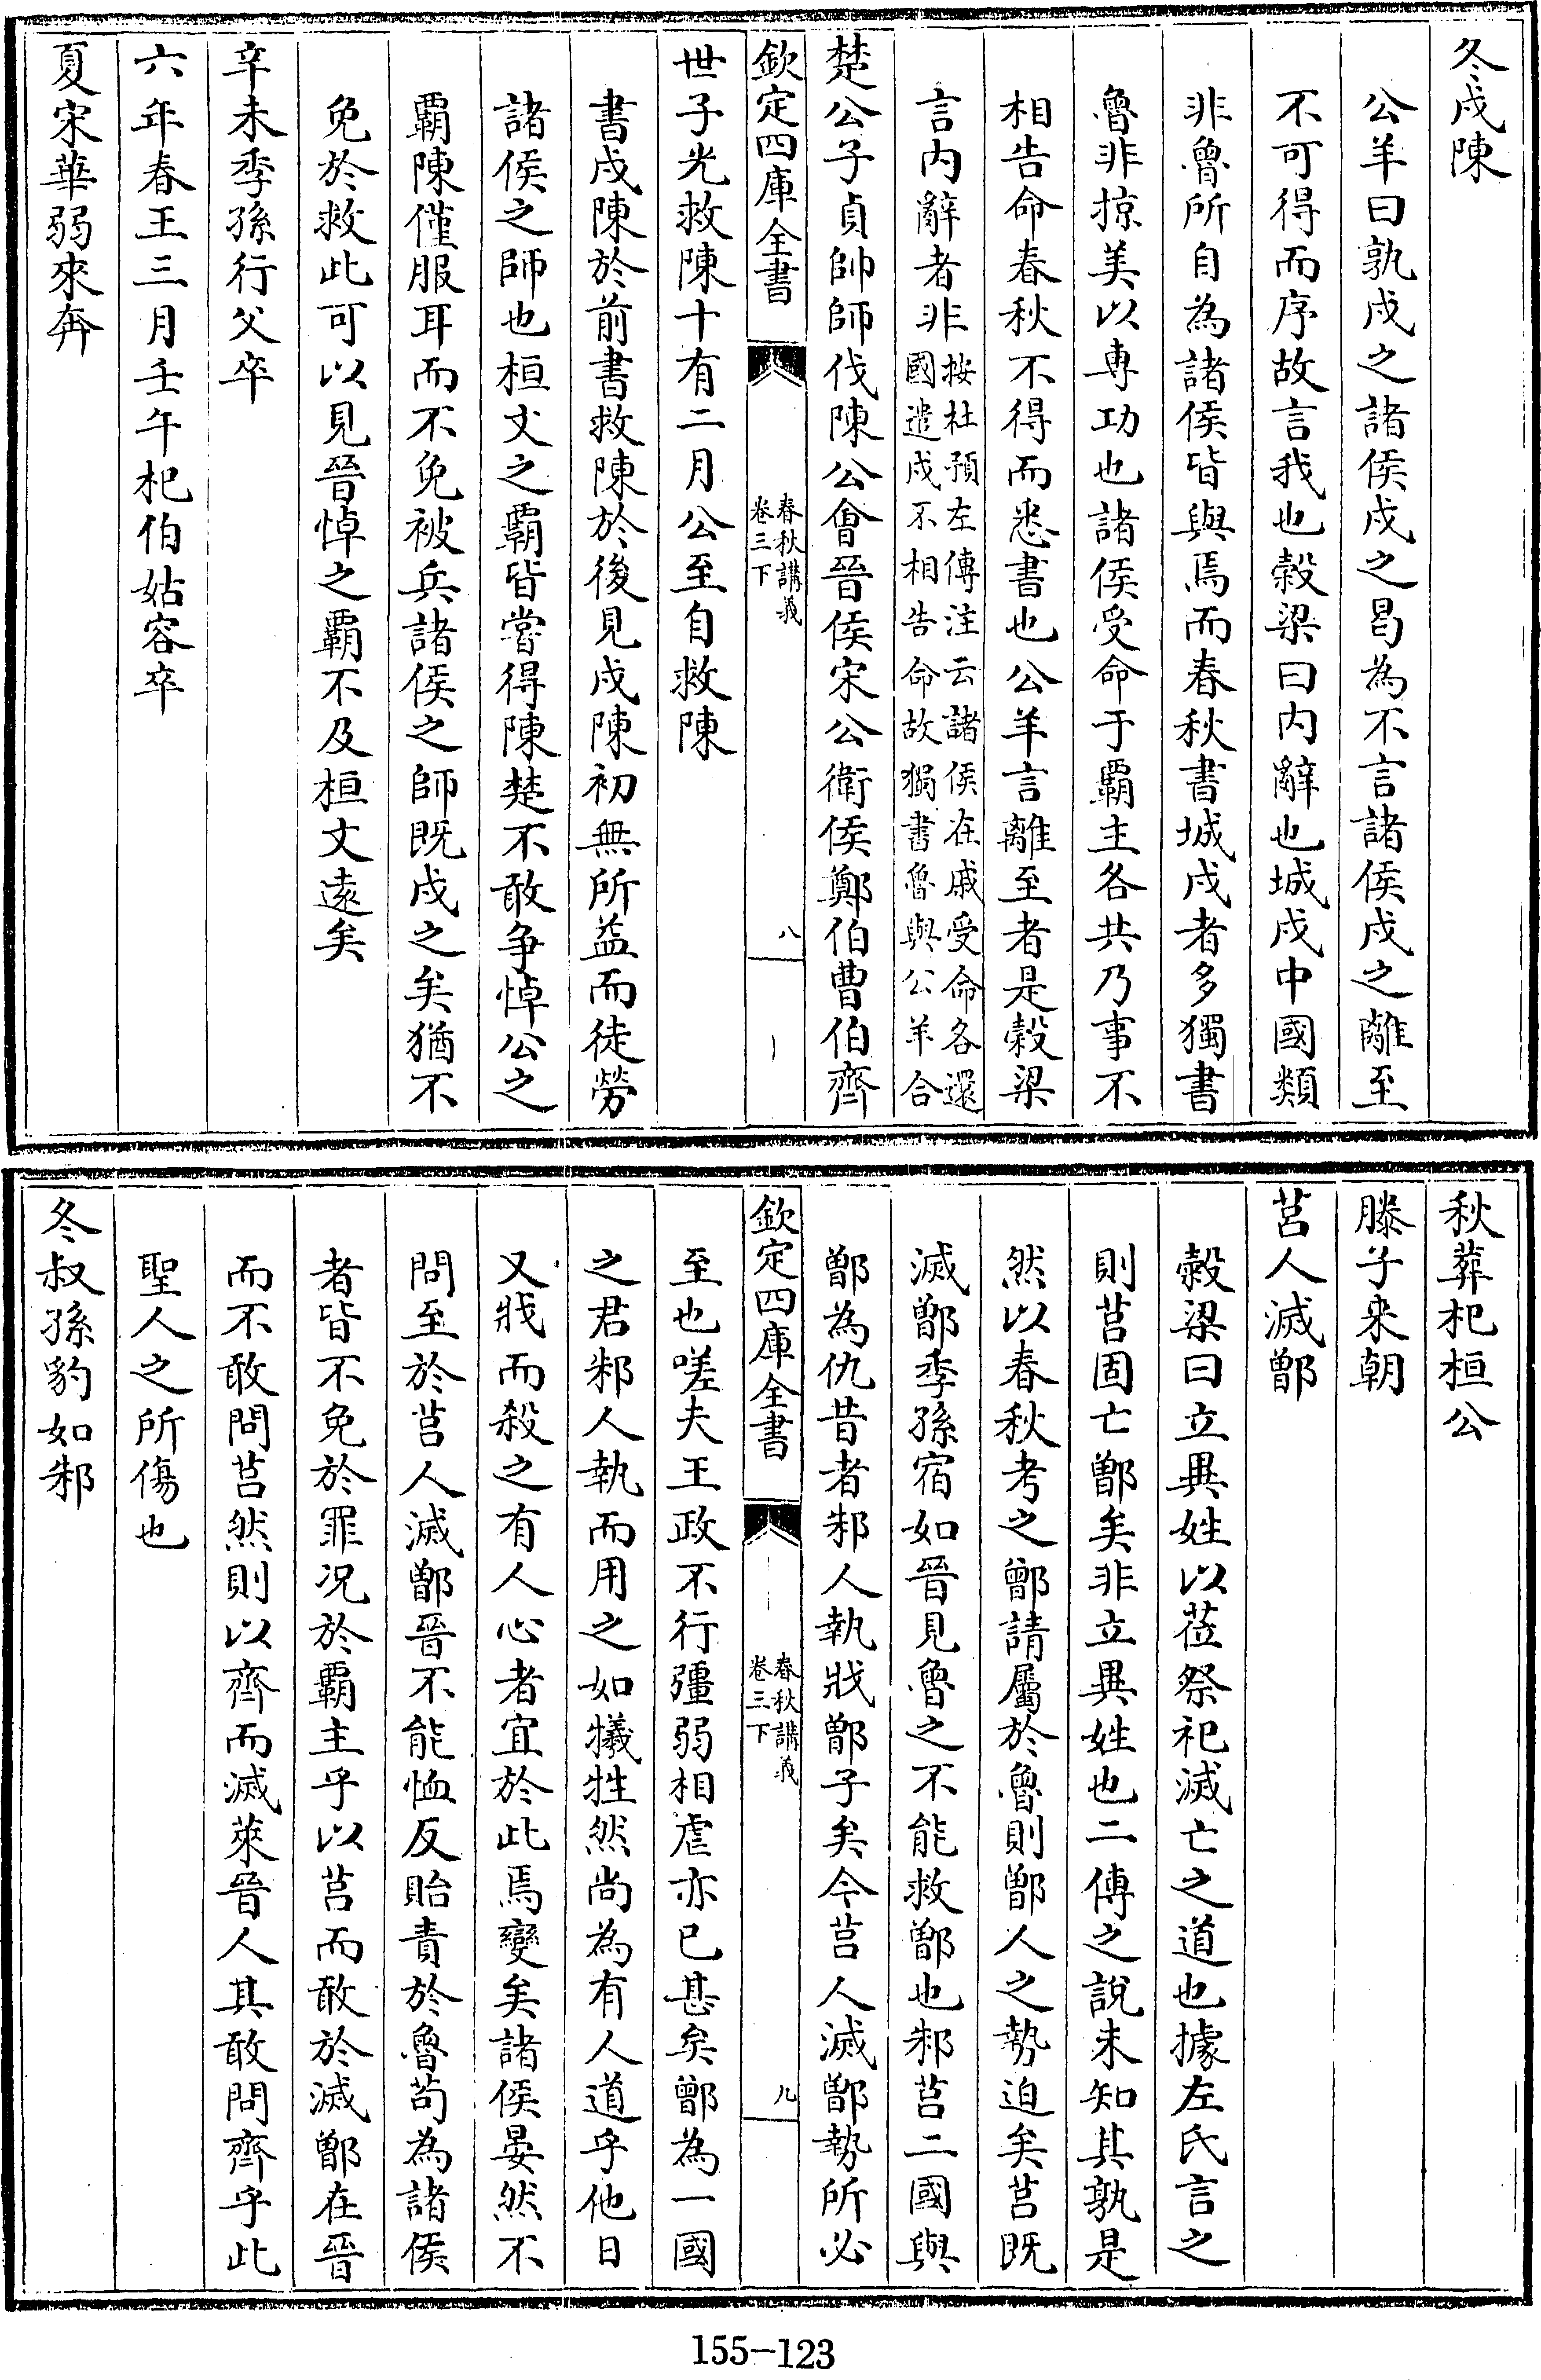 冬戍陳
公羊曰孰戍之諸侯戍之曷為不言諸侯戍之離至
不可得而序故言我也糓梁曰内辭也城戍中國類
非魯所自為諸侯皆與焉而春秋書城戍者多獨書
魯非掠美以專功也諸侯受命于覇主各共乃事不
相告命春秋不得而悉書也公羊言離至者是糓梁
言内辭者非按杜預左傳注云諸侯在戚受命各還
國遣戍不相告命故獨書魯與公羊合
楚公子貞帥師伐陳公會晉侯宋公衛侯鄭伯曹伯齊
欽定四庫全書
春秋講義
卷三下
八
世子光救陳十有二月公至自救陳
書戍陳於前書救陳於後見戍陳初無所益而徒勞
諸侯之師也桓文之覇皆嘗得陳楚不敢争悼公之
覇陳僅服耳而不免被兵諸侯之師既戍之矣猶不
免於救此可以見晉悼之覇不及桓文遠矣
辛未季孫行父卒
六年春王三月壬午杞伯姑容卒
夏宋華弱來奔
秋葬杞桓公
滕子来朝
莒人滅鄫
糓梁曰立異姓以莅祭祀滅亡之道也據左氏言之
則莒固亡鄫矣非立異姓也二傳之說未知其孰是
然以春秋考之鄫請屬於魯則鄫人之勢迫矣莒既
滅鄫季孫宿如晉見魯之不能救鄫也邾莒二國與
鄫為仇昔者邾人執戕鄫子矣今莒人滅鄫勢所必
欽定四庫全書
春秋講義
卷三下
九
至也嗟夫王政不行彊弱相虐亦已甚矣鄫為一國
之君邾人執而用之如犧牲然尚為有人道乎他日
又戕而殺之有人心者宜於此焉變矣諸侯晏然不
問至於莒人滅鄫晉不能恤反貽責於魯茍為諸侯
者皆不免於罪况於覇主乎以莒而敢於滅鄫在晉
而不敢問莒然則以齊而滅萊晉人其敢問齊乎此
聖人之所傷也
冬叔孫豹如邾
155-123